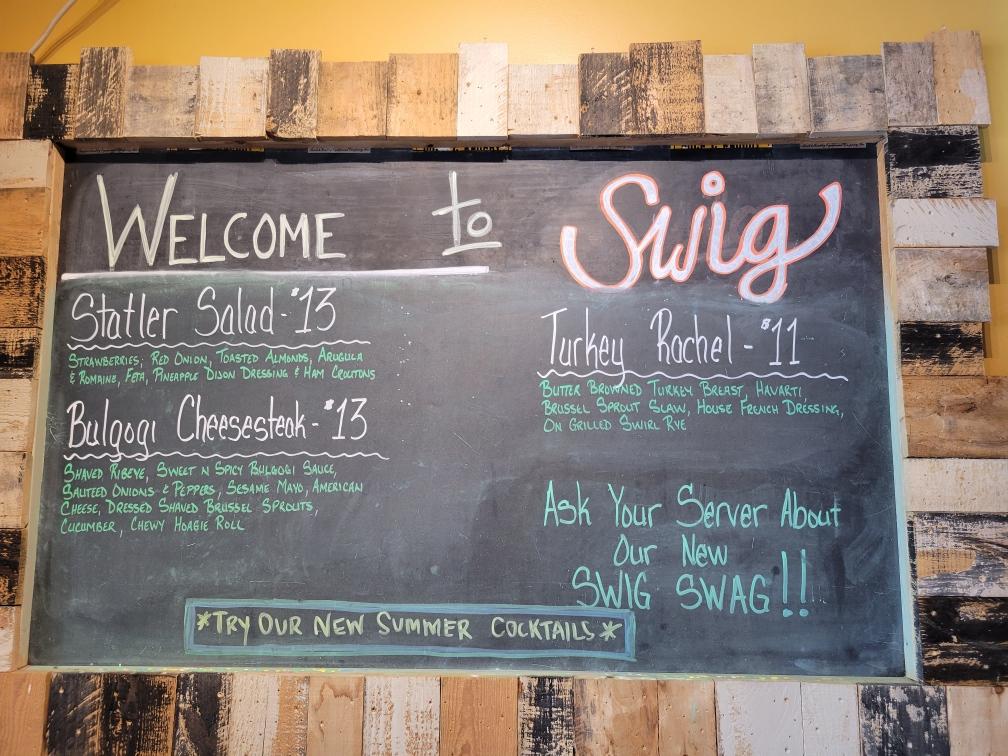 WELCOME to Swig
Statler Salad - $13
STRAWBERRIES, RED ONION, TOASTED ALMONDS, ARUGULA
& ROMAINE, FETA, PINEAPPLE DIJON DRESSING & HAM CROUTONS
Bulgogi Cheesesteak - $13
SHAVED RIBEYE, SWEET N SPICY BULGOGI SAUCE,
SAUTEED ONIONS & PEPPERS, SESAME MAYO, AMERICAN
CHEESE, DRESSED SHAVED BRUSSEL SPROUTS,
CUCUMBER, CHEWY HOAGIE ROLL
Turkey Rachel - $11
BUTTER BROWNED TURKEY BREAST, HAVARTI,
BRUSSEL SPROUT SLAW, HOUSE FRENCH DRESSING,
ON GRILLED SWIRL RYE
Ask Your Server About
Our New
SWIG SWAG!!
*TRY OUR NEW SUMMER COCKTAILS*